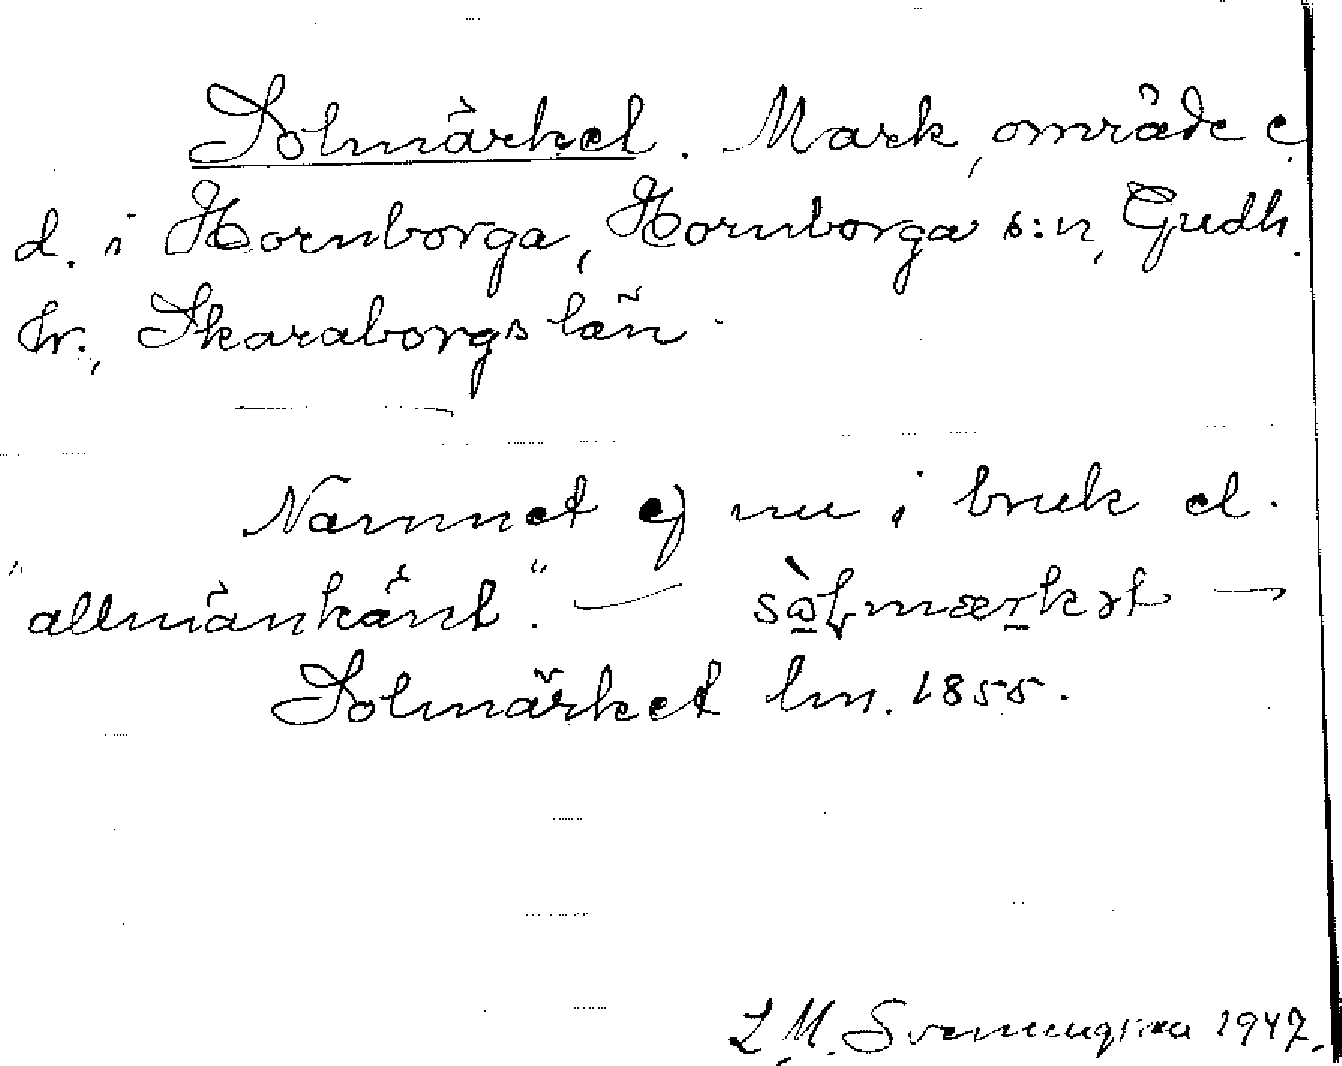 Solmärket. Mark, område e.
d. i Hornborga, Hornborga s:n, Gudh.
hr., Skaraborgs län
Namnet ej nu i bruk el.
"allmänkänt". —
Solmärket lm. 1855.
L. M. Svenungsson 1947.